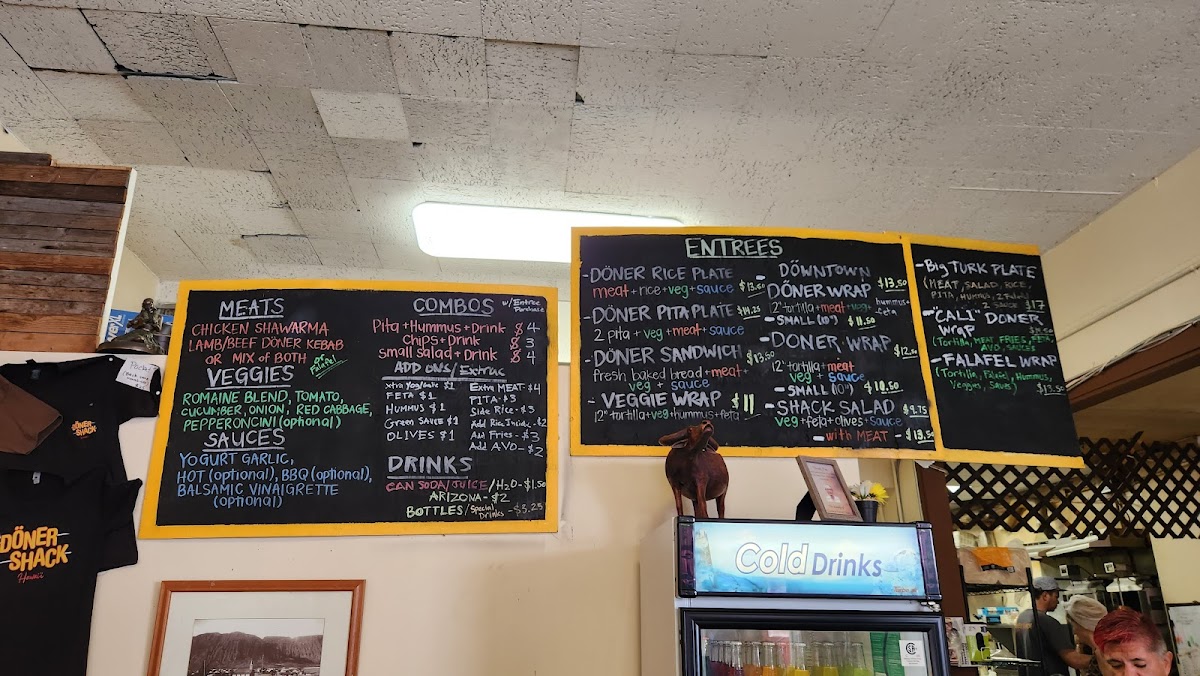 MEATS
CHICKEN SHAWARMA
LAMB/BEEF DÖNER KEBAB
OR MIX OF BOTH
or Falafel
VEGGIES
ROMAINE BLEND, TOMATO,
CUCUMBER, ONION, RED CABBAGE,
PEPPERONCINI (optional)
SAUCES
YOGURT GARLIC,
HOT (optional), BBQ (optional),
BALSAMIC VINAIGRETTE
(optional)
COMBOS w/Entree Purchase
Pita + Hummus + Drink $4
Chips + Drink $3
Small salad + Drink $4
ADD ONS/Extras
$1
FETA $1
HUMMUS $1
Green SAUCE $1
OLIVES $1
Extra MEAT - $4
PITA - $3
Side Rice - $3
Add Rice Inside - $2
Add Fries - $3
Add AVO - $2
DRINKS
CAN SODA/JUICE/H2O - $1.50
ARIZONA - $2
BOTTLES/Special Drinks - $5.25
ENTREES
- DÖNER RICE PLATE
meat + rice + veg + sauce $13.50
- DÖNER PITA PLATE $14.25
2 pita + veg + meat + sauce
- DÖNER SANDWICH $13.50
fresh baked bread + meat +
veg + sauce
- VEGGIE WRAP $11
12" tortilla + veg + hummus + feta
- DÖWNTOWN
DÖNER WRAP $13.50
12" tortilla + meat + veg + hummus + feta
- SMALL (10") $11.50
- DONER WRAP $12.50
12" tortilla + meat
veg + sauce
- SMALL (10") $10.50
- SHACK SALAD $9.75
veg + feta + olives + sauce
- with MEAT - $13.50
- Big TURK PLATE
(MEAT, SALAD, RICE,
PITA, HUMMUS, 2 Falafel
2 SAUCE $17
- "CALI" DONER
Wrap
(Tortilla, MEAT, FRIES, FETA,
AVO, SAUCE)
- FALAFEL WRAP
(Tortilla, Falafel, Hummus,
Veggies, Sauce) $13.50
DÖNER
SHACK
DÖNER
SHACK
Hawaii
Cold Drinks